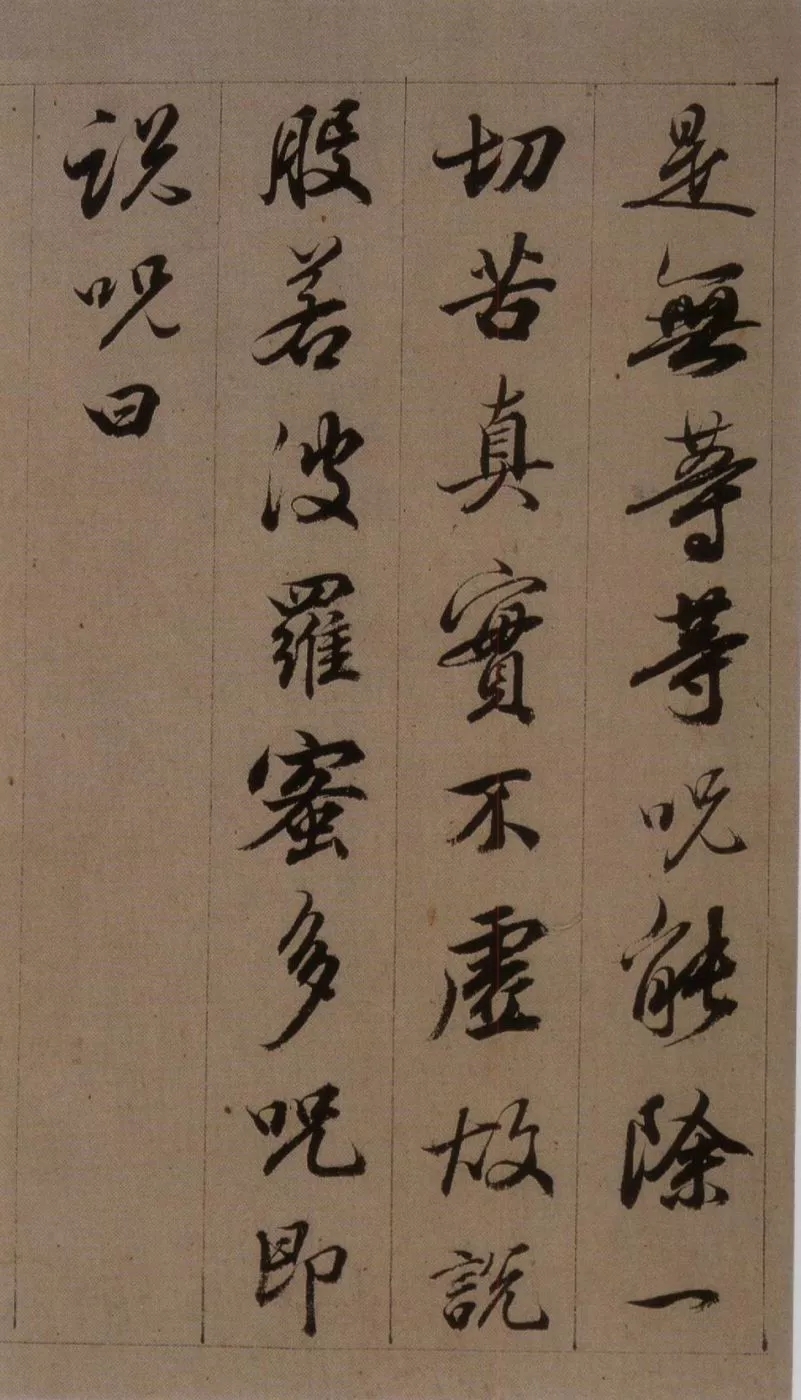 是無等等呪能除一
切苦真實不虛故說
般若波羅蜜多呪即
說呪曰